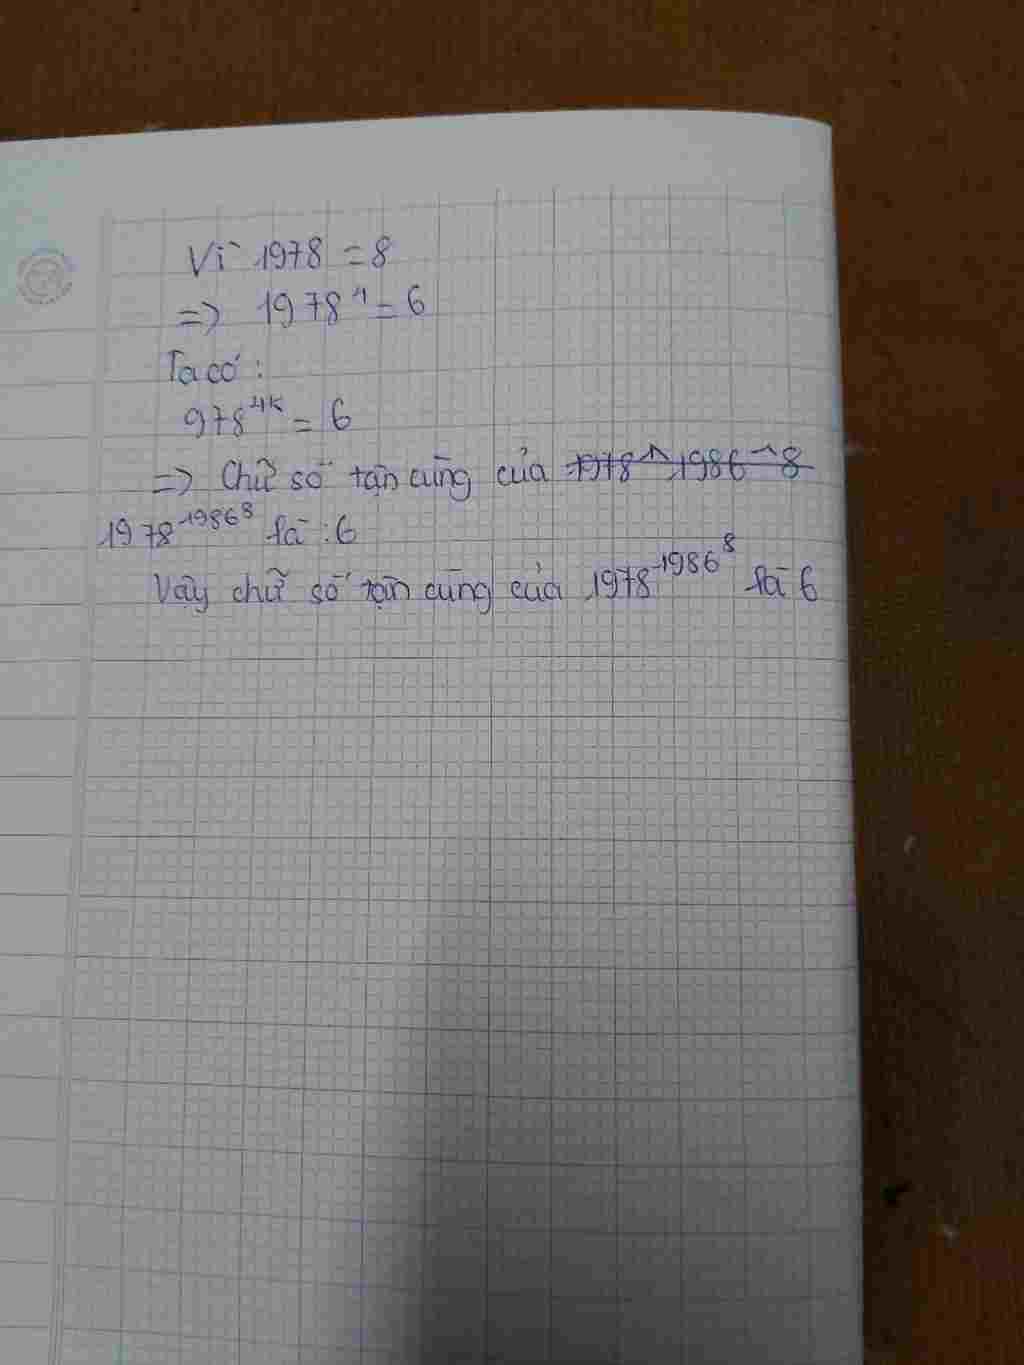 Vì 1978 = 8
=> 1978⁴ = 6
Ta có :
978⁴ᵏ = 6
=> Chữ số tận cùng của 1978^1986^8
1978^1986^8 là : 6
Vậy chữ số tận cùng của 1978^1986^8 là 6